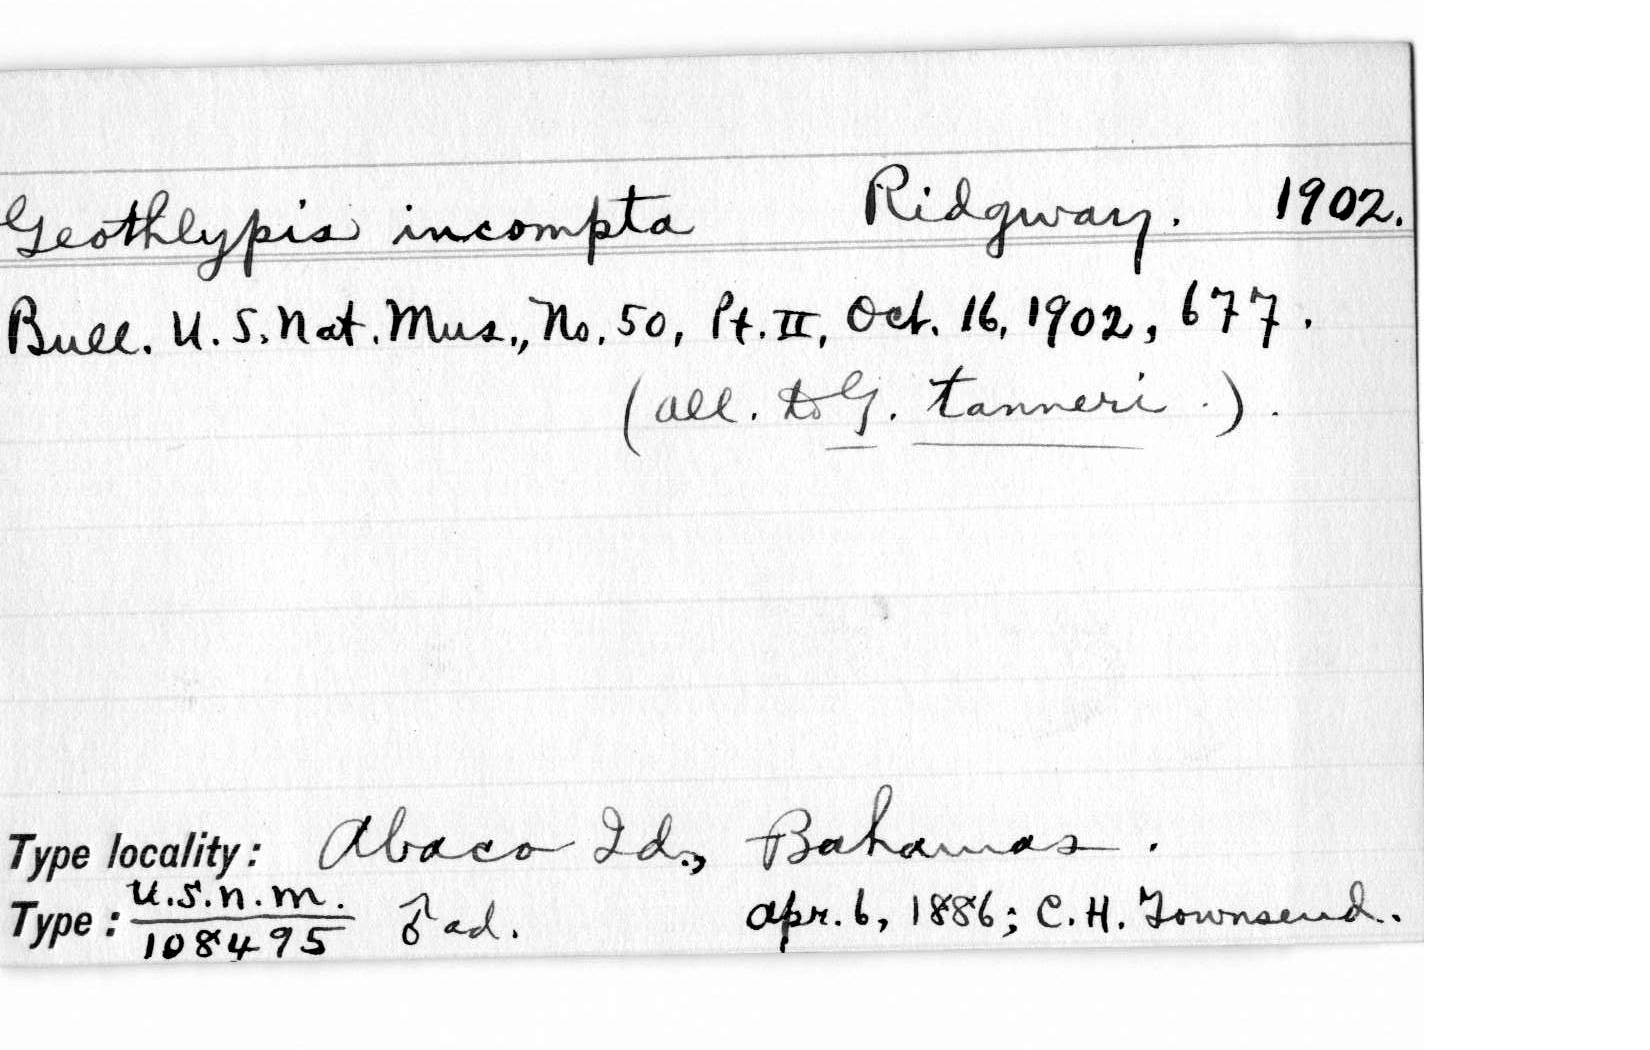 Geothlypis incompta Ridgway. 1902.
Bull. U.S. Nat. Mus., No. 50, Pt. II, Oct. 16, 1902, 677.
(all. to G. tanneri.).
Type locality: Abaco Id., Bahamas.
Type: U.S.N.M. 108495 ♂ ad. Apr. 6, 1886; C.H. Townsend.